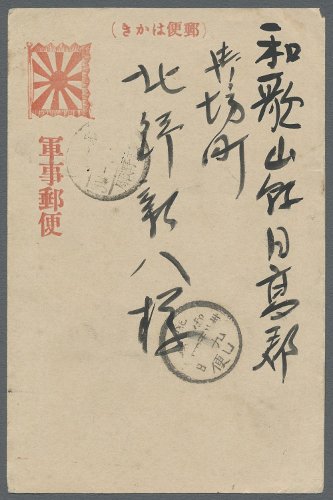 (きかは便郵)
軍事郵便
和歌山縣日高郡
御坊町
北野新八様
九
便